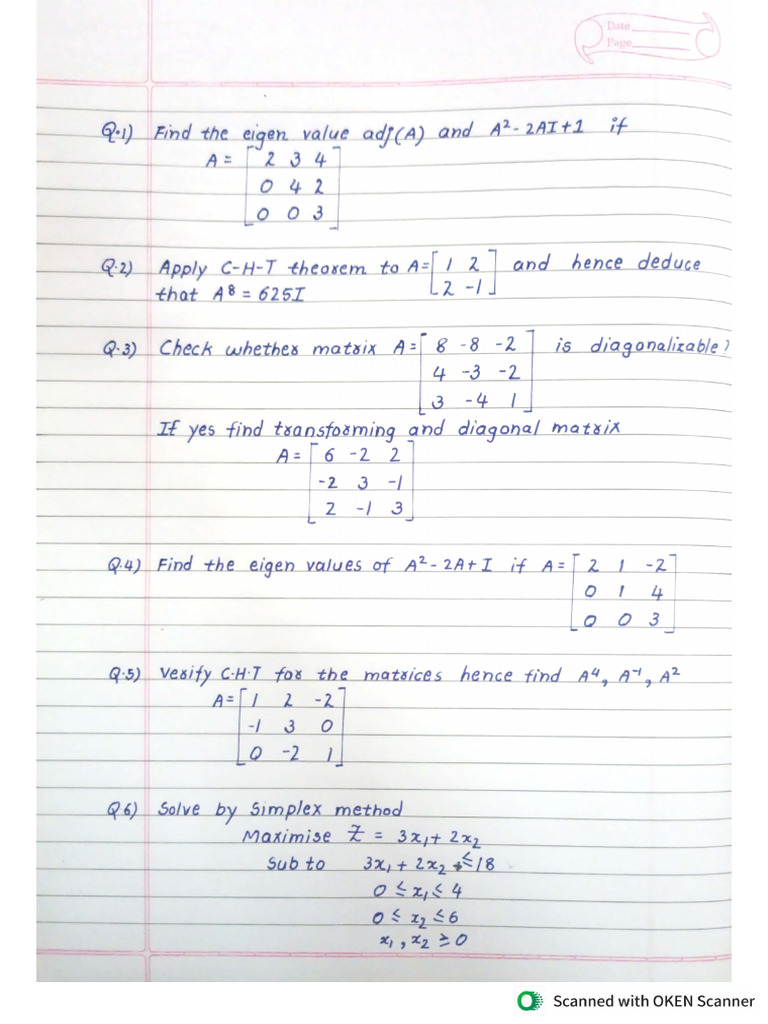 Date
Page
Q.1) Find the eigen value adj(A) and A² - 2AI + 1 if
A = [ 2 3 4 ]
0 4 2
0 0 3
Q.2) Apply C-H-T theorem to A = [ 1 2 ] and hence deduce
2 -1
that A⁸ = 625I
Q.3) Check whether matrix A = [ 8 -8 -2 ] is diagonalizable?
4 -3 -2
3 -4 1
If yes find transforming and diagonal matrix
A = [ 6 -2 2 ]
-2 3 -1
2 -1 3
Q.4) Find the eigen values of A² - 2A + I if A = [ 2 1 -2 ]
0 1 4
0 0 3
Q.5) Verify C.H.T for the matrices hence find A⁴, A⁻¹, A²
A = [ 1 2 -2 ]
-1 3 0
0 -2 1
Q6) Solve by Simplex method
Maximise Z = 3x₁ + 2x₂
Sub to 3x₁ + 2x₂ ≤ 18
0 ≤ x₁ ≤ 4
0 ≤ x₂ ≤ 6
x₁, x₂ ≥ 0
Scanned with OKEN Scanner